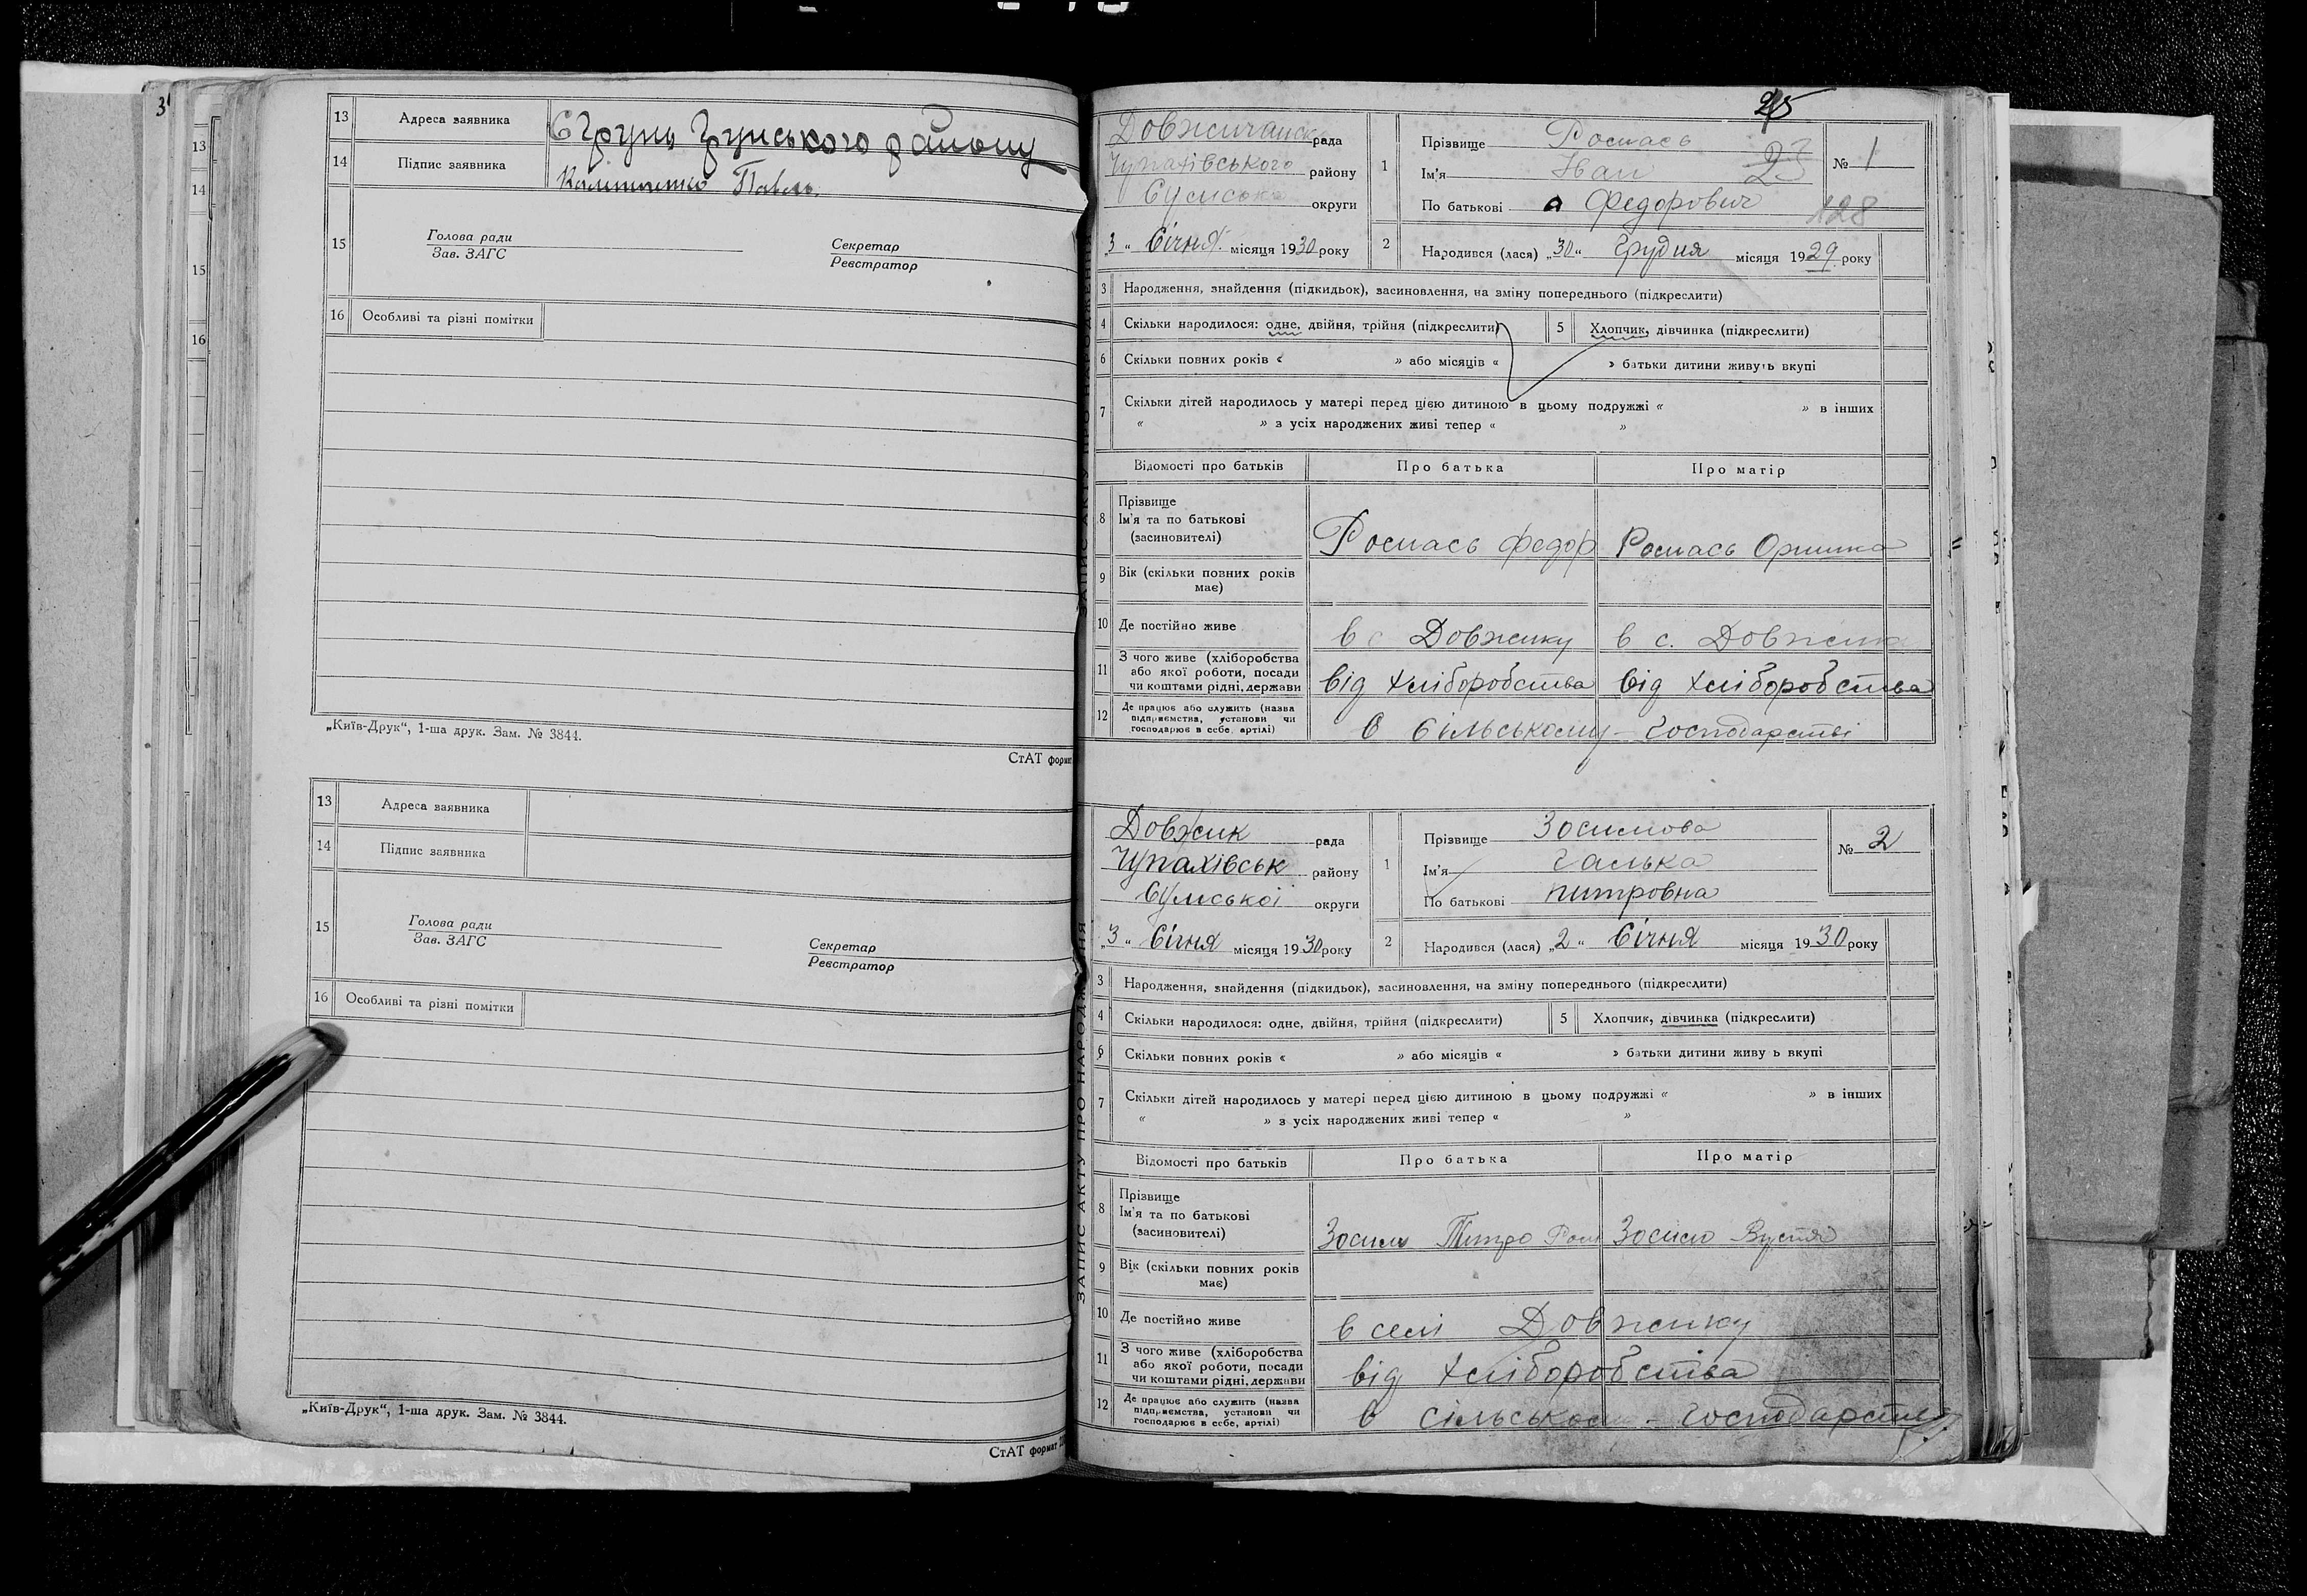 3
13
14
15
16
13 Адреса заявника с Грунь Грунського району
14 Підпис заявника Павель
15 Голова ради
Зав. ЗАГС
Секретар
Реєстратор
16 Особливі та різні помітки
„Київ-Друк“, 1-ша друк. Зам. № 3844.
СтАТ формат
13 Адреса заявника
14 Підпис заявника
15 Голова ради
Зав. ЗАГС
Секретар
Реєстратор
16 Особливі та різні помітки
„Київ-Друк“, 1-ша друк. Зам. № 3844.
СтАТ формат
ЗАПИС АКТУ ПРО НАРОДЖЕННЯ
25
Довжичанск рада
Чупахівського району
Сумська округи
„3“ Січня місяця 1930 року
1 Прізвище Росмась
Ім'я Іван
23
По батькові Федорович
128
№ 1
2 Народився (лася) „30“ Грудня місяця 1929 року
3 Народження, знайдення (підкидьок), засиновлення, на зміну попереднього (підкреслити)
4 Скільки народилося: одне, двійня, трійня (підкреслити) 5 Хлопчик, дівчинка (підкреслити)
6 Скільки повних років « » або місяців « » батьки дитини живуть вкупі
7 Скільки дітей народилось у матері перед цією дитиною в цьому подружжі « » в інших
« » з усіх народжених живі тепер « »
Відомості про батьків Про батька Про матір
8 Прізвище
Ім'я та по батькові
(засиновителі) Росмась Федор Росмась Оришка
9 Вік (скільки повних років
має)
10 Де постійно живе в с Довжику в с. Довжик
11 З чого живе (хліборобства
або якої роботи, посади
чи коштами рідні, держави від хліборобства від хліборобства
12 Де працює або служить (назва
підприємства, установи чи
господарює в себе, артілі) в сільському-господарстві
ЗАПИС АКТУ ПРО НАРОДЖЕННЯ
Довжик рада
Чупахівськ району
Сумської округи
„3“ Січня місяця 1930 року
1 Прізвище Зосимова
Ім'я Галька
По батькові питровна
№ 2
2 Народився (лася) „2“ Січня місяця 1930 року
3 Народження, знайдення (підкидьок), засиновлення, на зміну попереднього (підкреслити)
4 Скільки народилося: одне, двійня, трійня (підкреслити) 5 Хлопчик, дівчинка (підкреслити)
6 Скільки повних років « » або місяців « » батьки дитини живу ь вкупі
7 Скільки дітей народилось у матері перед цією дитиною в цьому подружжі « » в інших
« » з усіх народжених живі тепер « »
Відомості про батьків Про батька Про матір
8 Прізвище
Ім'я та по батькові
(засиновителі) Зосим Питро Ром Зосим Вустя
9 Вік (скільки повних років
має)
10 Де постійно живе в селі Довжику
11 З чого живе (хліборобства
або якої роботи, посади
чи коштами рідні, держави від хліборобства
12 Де працює або служить (назва
підприємства, установи чи
господарює в себе, артілі) в сільском-господарстві